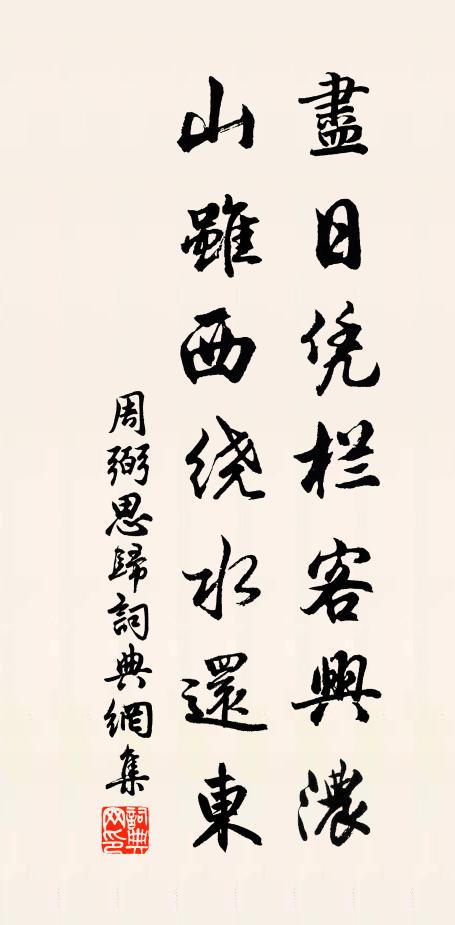 盡日凭栏客興濃
山雖西绕水還東
周弼思歸詞典網集
詞典網印